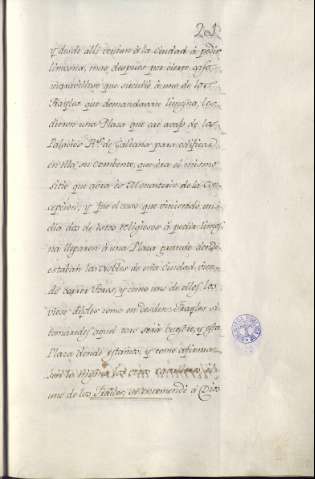 21
y desde allí venian à la ciudad à pedir
limosna, mas despues por cierto caso
maravilloso que sucediò à uno de los
Frayles que demandavan limosna, les
dieron una Plaza que era de los
Palacios R.s de Galiana para edificar
en ella su Combento, que era el mismo
sitio que aora es Monasterio de la Con-
cepcion; y fue el caso que viniendo un
dia dos de estos religiosos à pedir limos-
na llegaron à una Plaza grande donde
estaban los nobles de esta Ciudad vien-
do correr toros, y como uno de ellos los
viese dijoles como en desden: Frayles si
tomardes aquel toro serà vuestro, y esta
Plaza donde estamos, y como afirmasen
lo mismo los otros caballeros, el
uno de los Frailes, se encomendò à Dios